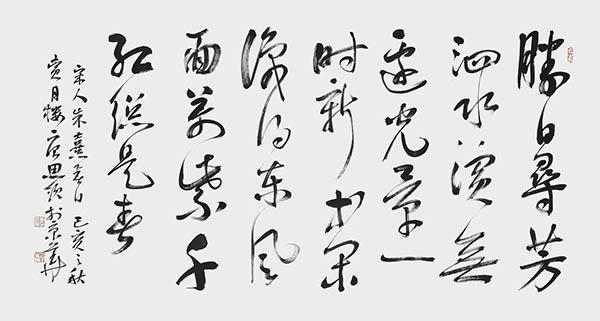 勝日尋芳
泗水濱無
邊光景一
时新等閑
識得東風
面萬紫千
红總是春
宋人朱熹春日 己亥之秋
月樓 思 於京華